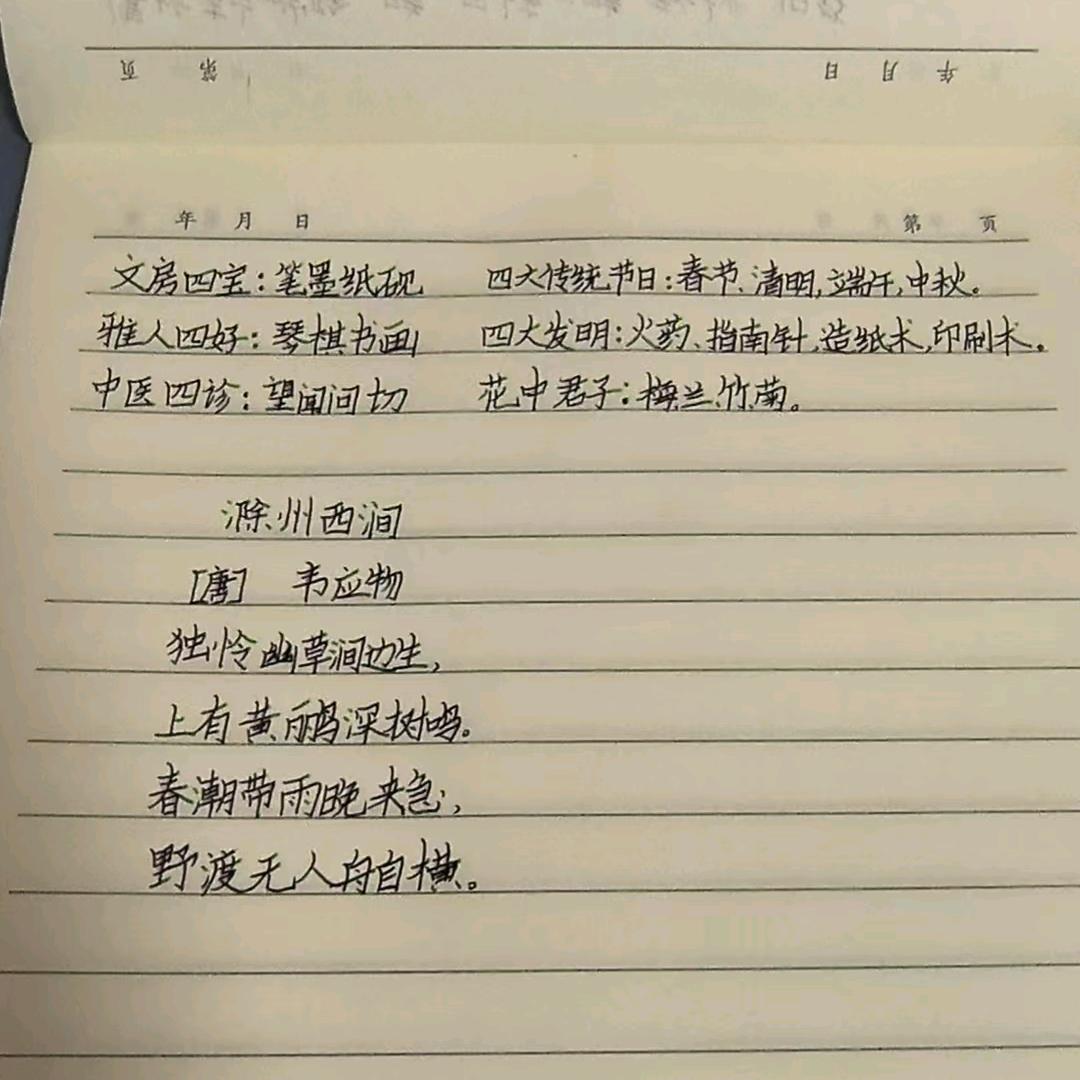 年 月 日
第 页
年 月 日 第 页
文房四宝：笔墨纸砚 四大传统节日：春节、清明，端午，中秋。
雅人四好：琴棋书画 四大发明：火药、指南针，造纸术，印刷术。
中医四诊：望闻问切 花中君子：梅兰竹菊。
滁州西涧
[唐] 韦应物
独怜幽草涧边生，
上有黄鹂深树鸣。
春潮带雨晚来急，
野渡无人舟自横。